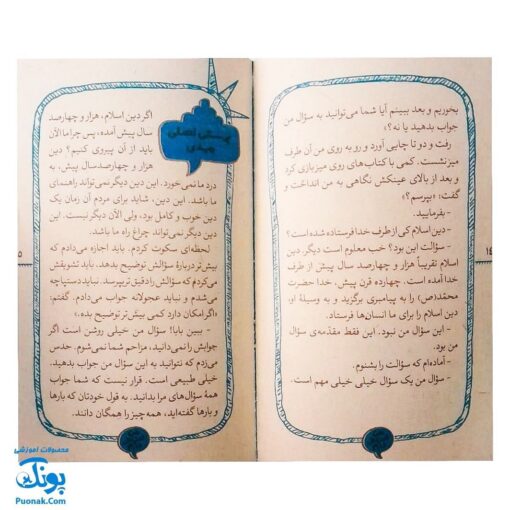 بخوریم و بعد ببینم آیا شما می‌توانید به سؤال من
جواب بدهید یا نه؟»
رفت و دو تا چایی آورد و رو به روی من آن طرف
میز نشست. کمی با کتاب‌های روی میز بازی کرد
و بعد از بالای عینکش نگاهی به من انداخت و
گفت: «بپرسم؟»
- بفرمایید.
- دین اسلام کی از طرف خدا فرستاده شده است؟
- سؤالت این بود؟ خب معلوم است دیگر. دین
اسلام تقریباً هزار و چهارصد سال پیش از طرف
خدا آمده است. چهارده قرن پیش، خدا حضرت
محمّد(ص) را به پیامبری برگزید و به وسیلهٔ او،
دین اسلام را برای ما انسان‌ها فرستاد.
- این سؤال من نبود. این فقط مقدّمه‌ی سؤال
من بود.
- آماده‌ام که سؤالت را بشنوم.
- سؤال من یک سؤال خیلی خیلی مهم است.
۱۴
پرسش اصلی
مهدی
اگر دین اسلام، هزار و چهارصد
سال پیش آمده، پس چرا ما الآن
باید از آن پیروی کنیم؟ دین
هزار و چهارصد سال پیش، به
درد ما نمی خورد. این دین دیگر نمی‌تواند راهنمای
ما باشد. این دین، شاید برای مردم آن زمان یک
دین خوب و کامل بود، ولی الآن دیگر نیست. این
دین دیگر نمی‌تواند چراغ راه ما باشد.
لحظه‌ای سکوت کردم. باید اجازه می‌دادم که
بیش‌تر دربارهٔ سؤالش توضیح بدهد. باید تشویقش
می‌کردم که سؤالش را دقیق‌تر بپرسد. نباید دستپاچه
می‌شدم و نباید عجولانه جواب می‌دادم. گفتم:
«اگر امکان دارد کمی بیش‌تر توضیح بده.»
- ببین بابا! سؤال من خیلی روشن است اگر
جوابش را نمی‌دانید، مزاحم شما نمی‌شوم. حدس
می‌زدم که نتوانید به این سؤال من جواب بدهید.
خیلی طبیعی است. قرار نیست که شما جواب
همهٔ سؤال‌های مرا بدانید. به قول خودتان که بارها
و بارها گفته‌اید، همه‌چیز را همگان دانند.
محصولات آموزشی
پونک
Puonak.Com